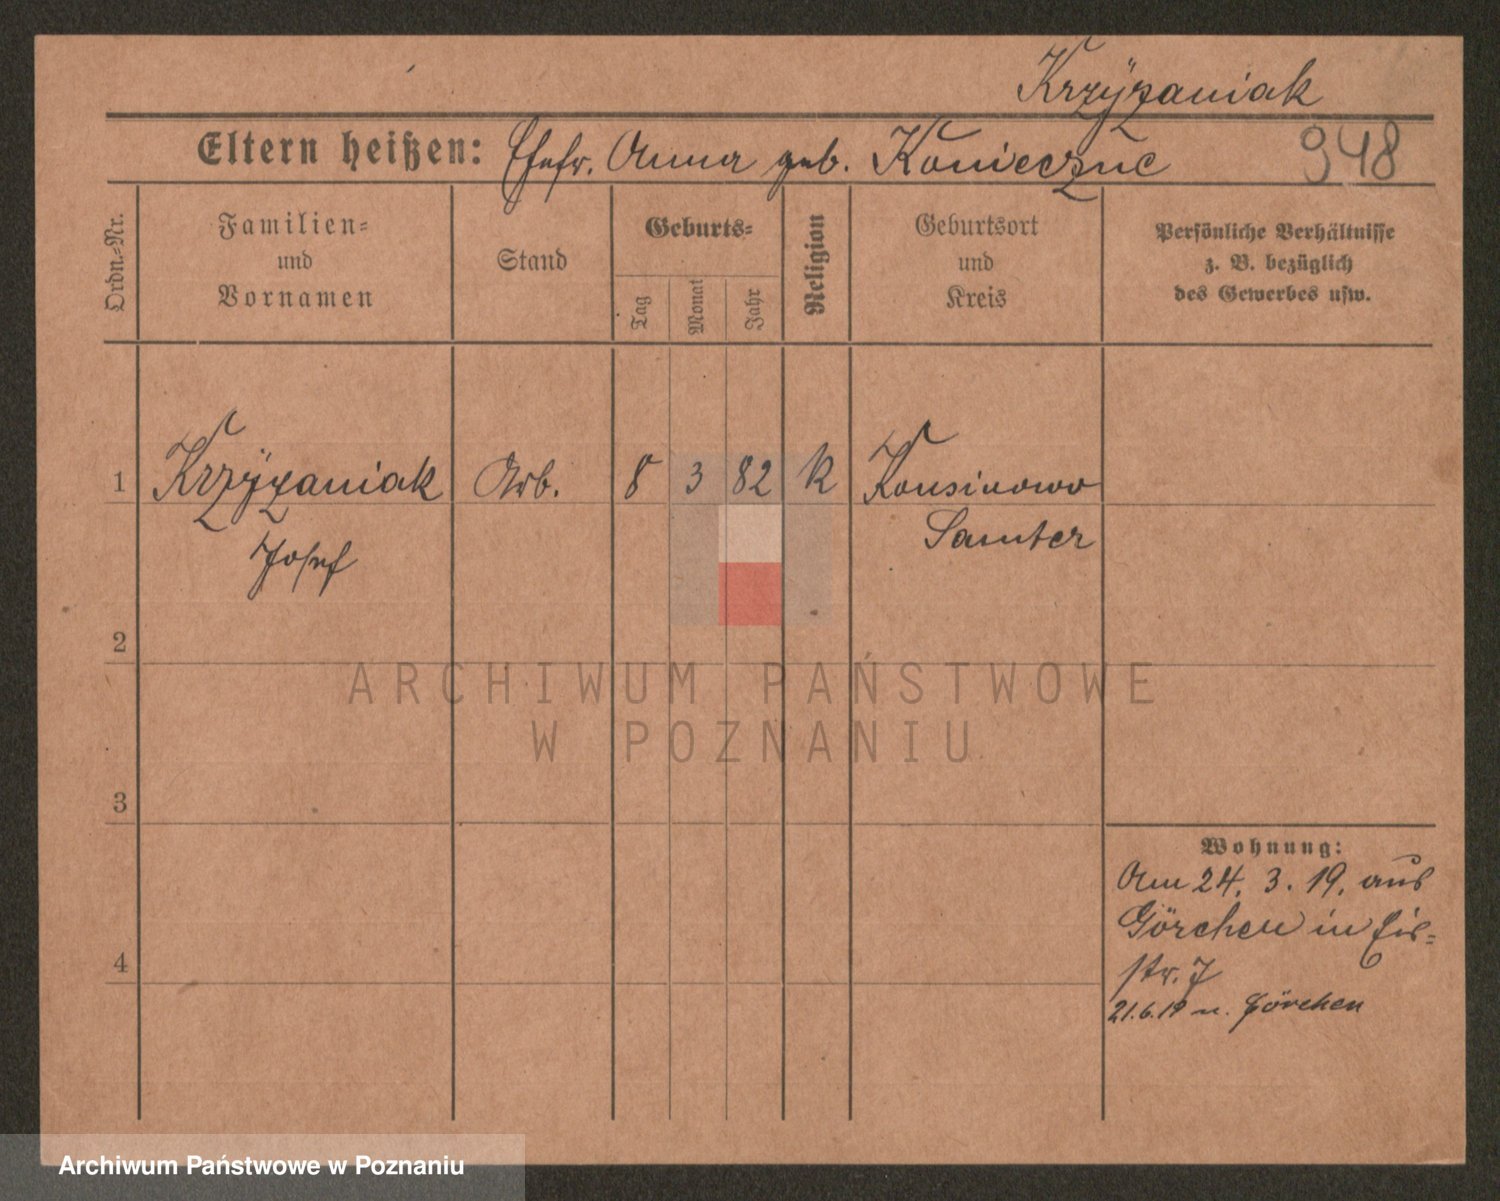 Krzÿzaniak
Eltern heißen: Ehefr. Anna geb. Konieczne
948
Ordn.-Nr.
Familien-
und
Vornamen
Stand
Geburts-
Tag
Monat
Jahr
Religion
Geburtsort
und
Kreis
Persönliche Verhältnisse
z. B. bezüglich
des Gewerbes usw.
1 Krzÿzaniak Arb. 8 3 82 k Konsinowo
Josef Samter
2
ARCHIWUM PAŃSTWOWE
W POZNANIU
3
Wohnung:
Am 24. 3. 19. aus
Görchen in
4
str. 7
21.6.19 n. Görchen
Archiwum Państwowe w Poznaniu